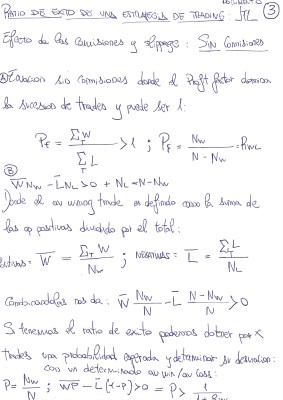 RATIO DE EXITO DE UNA ESTRATEGIA DE TRADING: 3
Efecto de las comisiones y slippage: SIN Comisiones
A) Ecuacion sin comisiones donde el Profit factor domina
la sucesion de trades y puede ser 1:
P_F = Σ_T W / Σ_T L > 1 ; P_F = N_W / N - N_W = R_WL
B)
W̅ N_W - L̅ N_L > 0 + N_L = N - N_W
Donde el av winning trade es definido como la suma de
las op positivas dividido por el total:
Positivas = W̅ = Σ_T W / N_W ; NEGATIVAS = L̅ = Σ_T L / N_L
Combinandolas nos da: W̅ N_W / N - L̅ N - N_W / N > 0
Si tenemos el ratio de exito podemos obtener por X
trades una probabilidad esperada y determinar su desviacion:
con un determinado av win/av loss:
P = N_W / N ; W̅P - L̅ (1-P) > 0 = P > 1 / 1 +